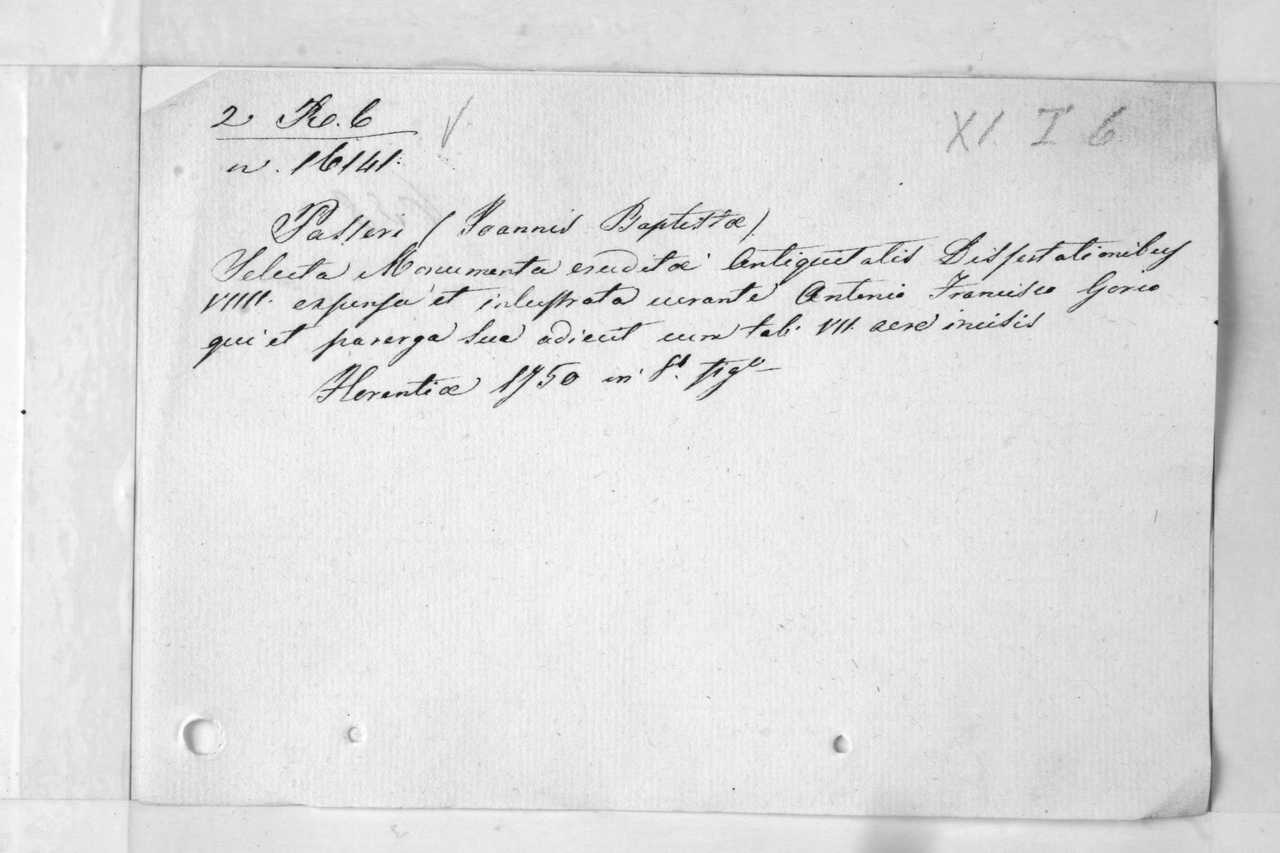 2 R. 6 V XI. I 6
n. 16141.
Passeri (Joannis Baptistæ)
Selecta Monumenta eruditæ Antiquitatis Dissertationibus
VIIII. expensa et inlustrata curante Antonio Francisco Gorio
qui et parerga sua adiecit cum tab. VII. aere incisis
Florentiæ 1750 in 8.º figº